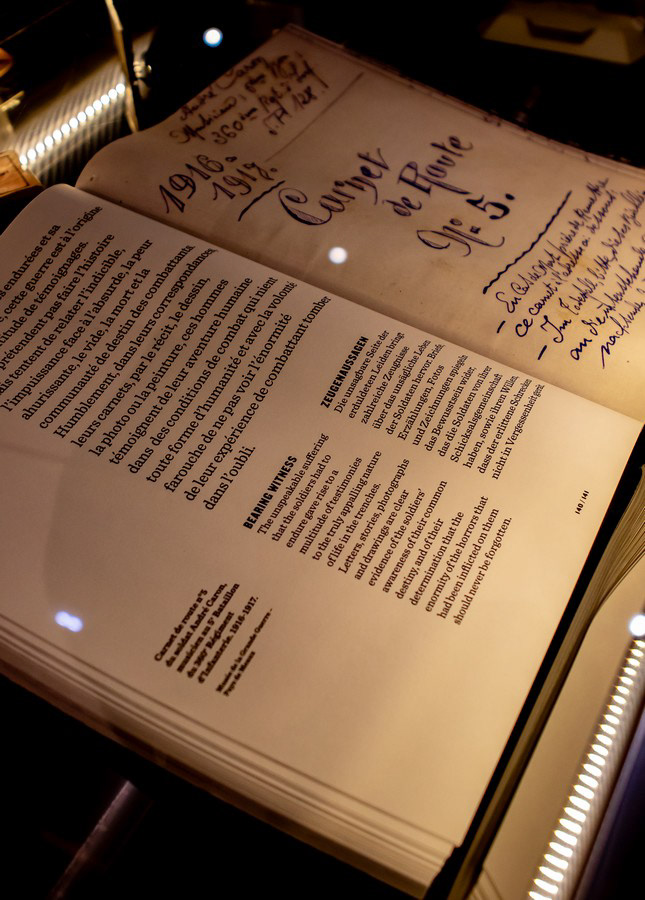 André Caron
Musicien
360
1916-
1917.
Carnet
de Route
N° 5.
ce carnet
- In
endurées et sa
, cette guerre est à l'origine
de témoignages.
prétendent pas faire l'histoire
tentent de relater l'indicible,
l'impuissance face à l'absurde, la peur
ahurissante, le vide, la mort et la
communauté de destin des combattants.
Humblement, dans leurs correspondances,
leurs carnets, par le récit, le dessin,
la photo ou la peinture, ces hommes
témoignent de leur aventure humaine
dans des conditions de combat qui nient
toute forme d'humanité et avec la volonté
farouche de ne pas voir l'énormité
de leur expérience de combattant tomber
dans l'oubli.
ZEUGENAUSSAGEN
Die unsagbare Seite der
erduldeten Leiden bringt
zahlreiche Zeugnisse
über das unsägliche Leben
der Soldaten hervor. Briefe,
Erzählungen, Fotos
und Zeichnungen spiegeln
das Bewusstsein wider,
das die Soldaten von ihrer
Schicksalsgemeinschaft
haben, sowie ihren Willen,
dass der erlittene Schrecken
nicht in Vergessenheit gerät.
BEARING WITNESS
The unspeakable suffering
that the soldiers had to
endure gave rise to a
multitude of testimonies
to the truly appalling nature
of life in the trenches.
Letters, stories, photographs
and drawings are clear
evidence of the soldiers'
awareness of their common
destiny, and of their
determination that the
enormity of the horrors that
had been inflicted on them
should never be forgotten.
140 / 141
Carnet de route n°5
du soldat André Caron,
musicien au 5e Bataillon
du 360e Régiment
d'Infanterie. 1916-1917.
Musée de la Grande Guerre -
Pays de Meaux